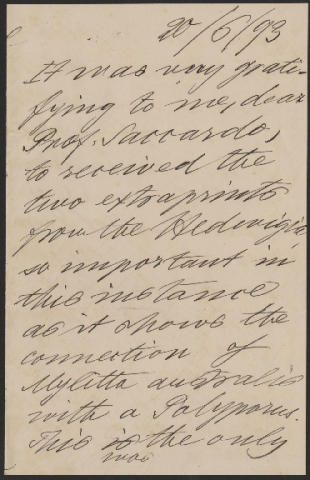 20/6/93
It was very grati-
fying to me, dear
Prof. Saccardo,
to received the
two extraprints
from the Hedwigia,
so important in
this instance
as it shows the
connection of
Mylitta australis
with a Polyporus.
This is the only
was